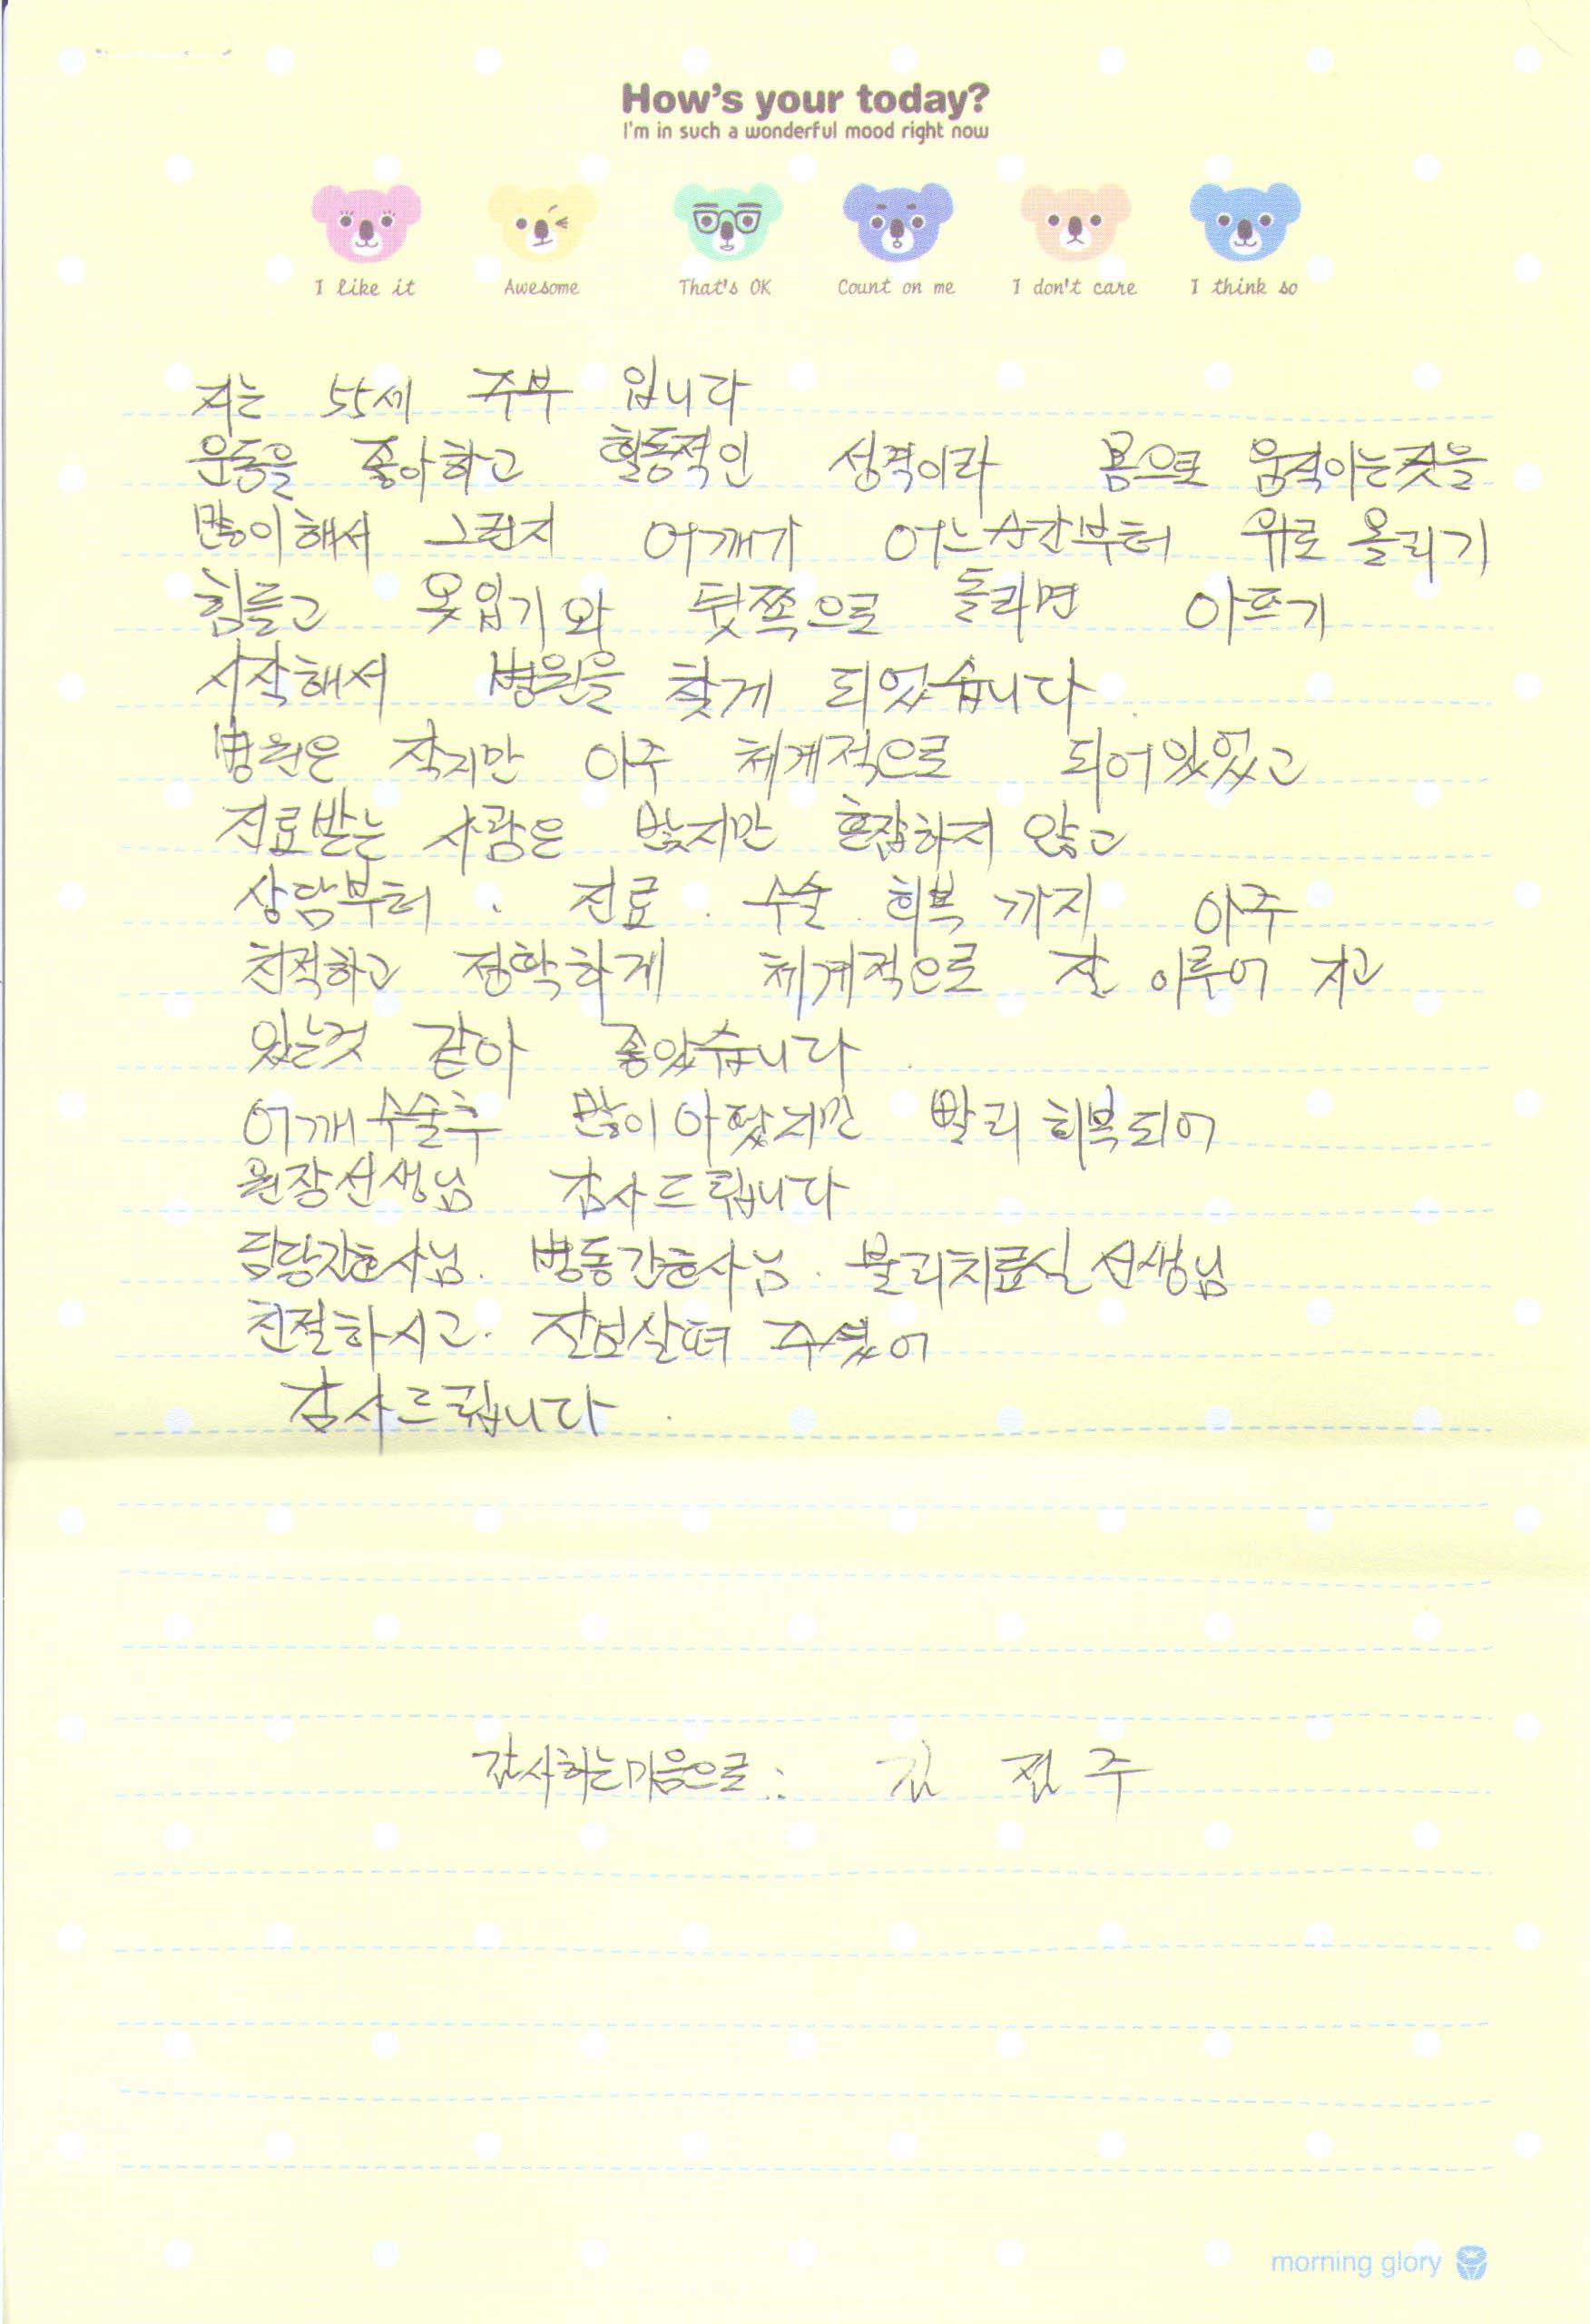 How's your today?
I'm in such a wonderful mood right now
I like it Awesome That's OK Count on me I don't care I think so
저는 55세 주부 입니다
운동을 좋아하고 활동적인 성격이라 몸으로 움직이는것을
많이해서 그런지 어깨가 어느순간부터 위로 올리기
힘들고 옷입기와 뒷쪽으로 돌리면 아프기
시작해서 병원을 찾게 되었습니다.
병원은 작지만 아주 체계적으로 되어있었고
진료받는 사람은 많지만 혼잡하지 않고
상담부터. 진료. 수술. 회복 까지 아주
친절하고 정확하게 체계적으로 잘 이루어 지고
있는것 같아 좋았습니다.
어깨수술후 많이 아팠지만 빨리 회복되어
원장선생님 감사드립니다
담당간호사님. 병동간호사님. 물리치료실 선생님
친절하시고. 잘보살펴 주셨어
감사드립니다.
감사하는마음으로: 김 주
morning glory